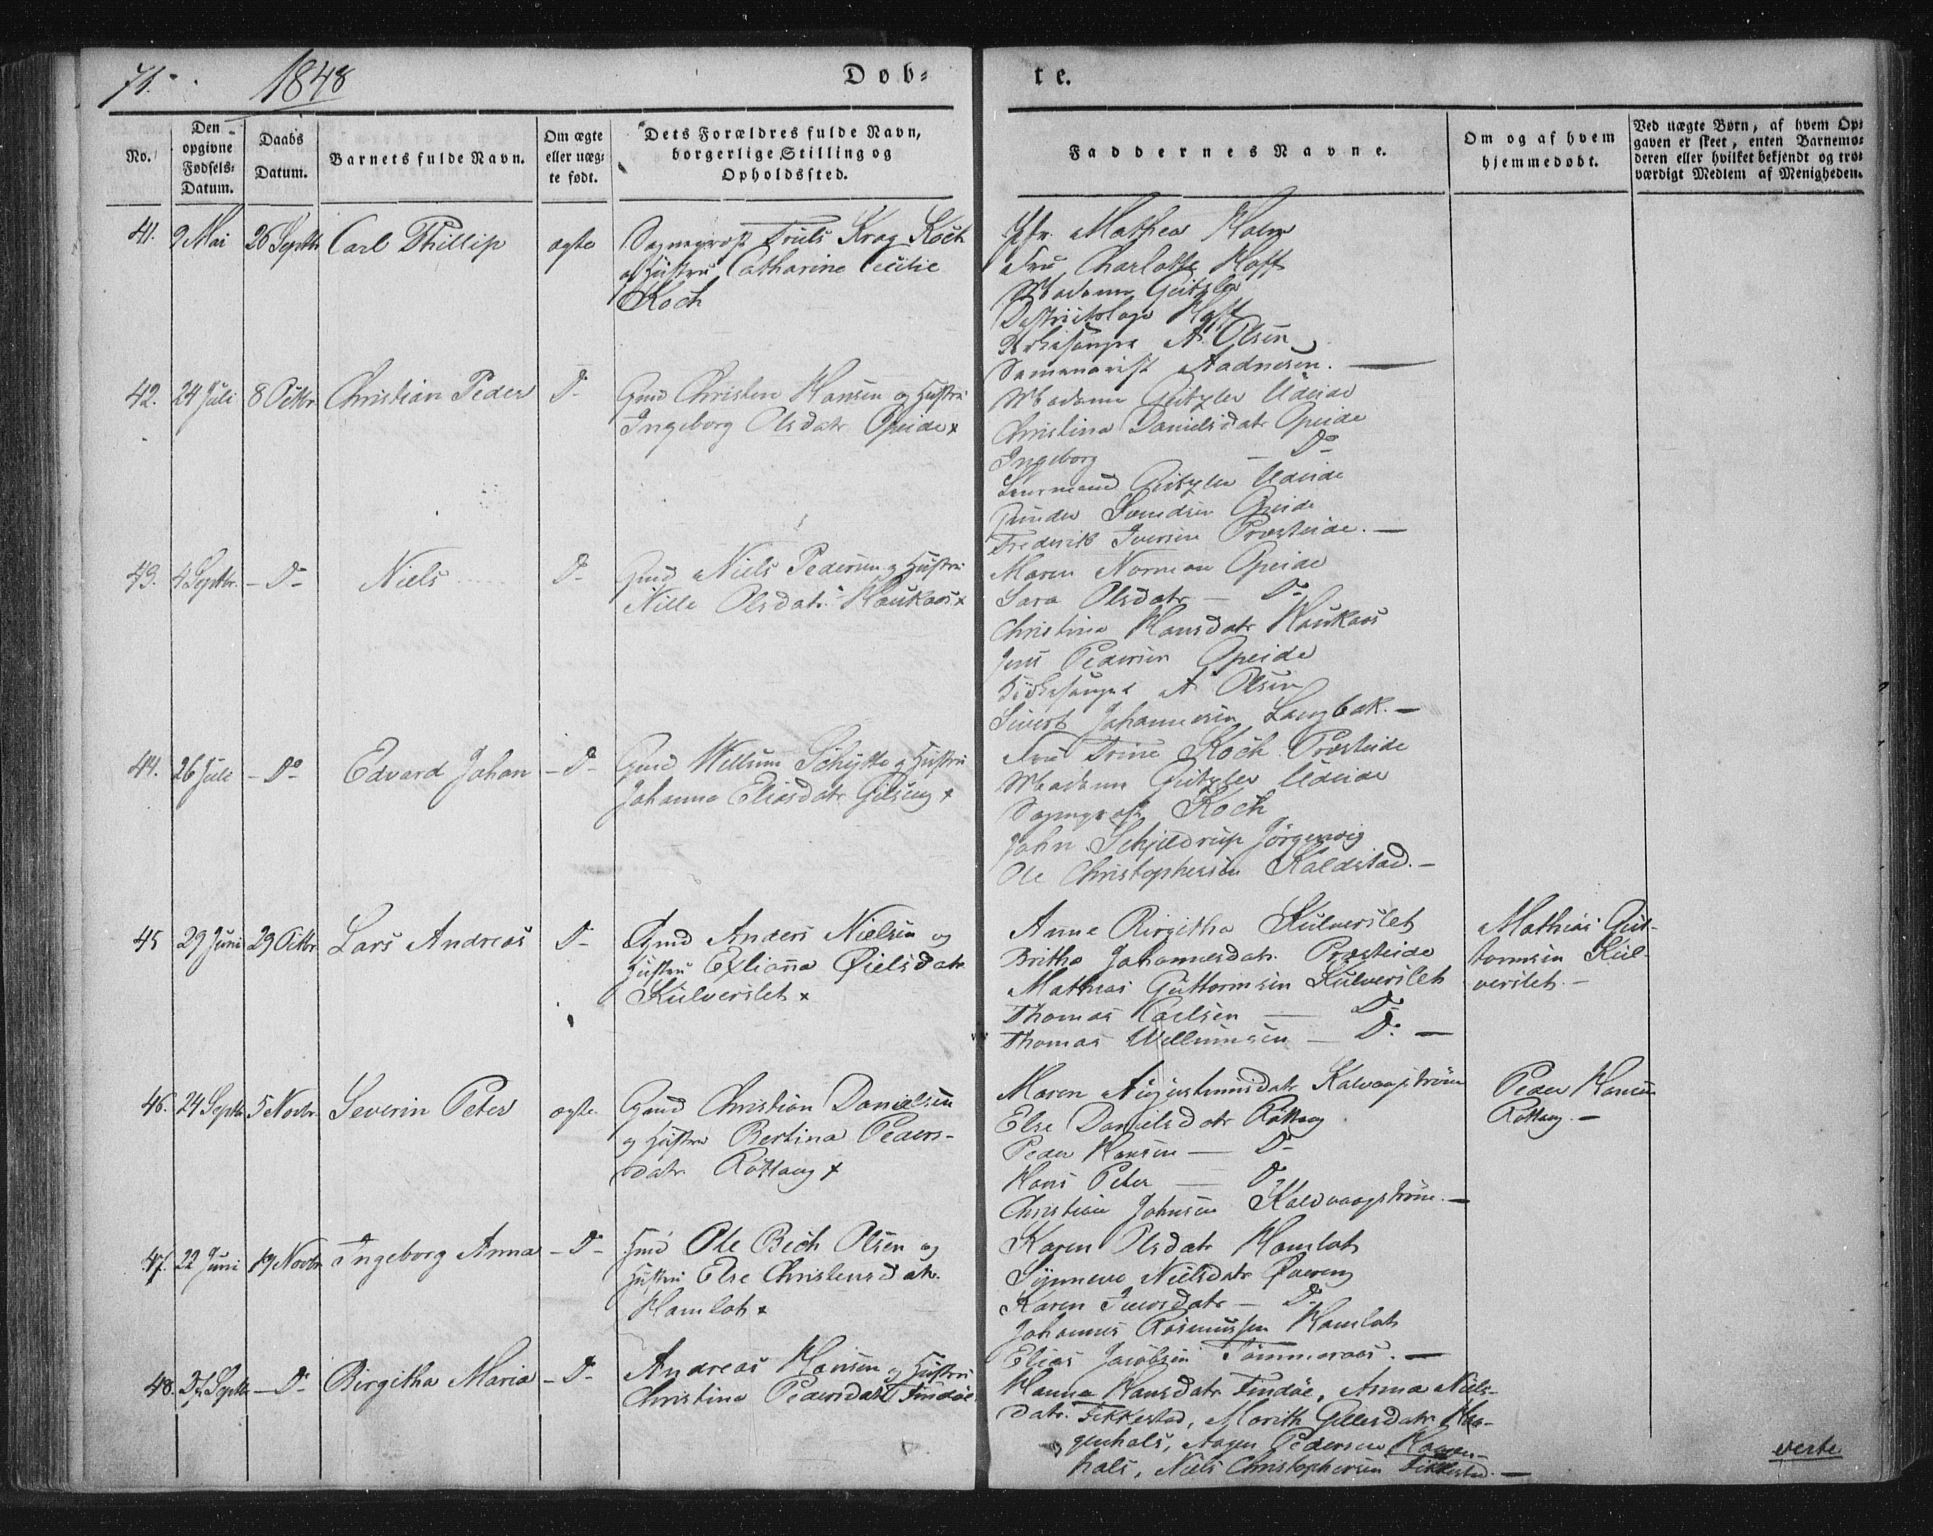 71.
1848
Døb-
te.
No.
Den opgivne Fødsels-Datum.
Daabs Datum.
Barnets fulde Navn.
Om ægte eller uægte født.
Dets Forældres fulde Navn, borgerlige Stilling og Opholdssted.
Faddernes Navne.
Om og af hvem hjemmedøbt.
Ved uægte Børn, af hvem Opgaven er skeet, enten Barnemoderen eller hvilket bekjendt og troværdigt Medlem af Menigheden.
41. 9 Mai 26 Septbr Carl Phillip ægte
Sogneprest Truls Krag Koch
og Hustru Catharine Cecilie
Koch
Jfr. Mathea Holm
Fru Charlotte Hoff
Madame Gützler
Districtslæge Hoff
Kirkesanger A. Olsen
Seminarist Aadnesen. —
42. 24 Juli 8 Octbr Christian Peder Do
Gmd Christen Hansen og Hustru
Ingeborg Olsdatr Opeide x
Madame Gützler Udeide
Christina Danielsdatr Opeide
Ingeborg — Do
Lensmand Gützler Udeide
Gunder Svendsen Opeide
Frederik Iversen Præsteide. —
43. 4 Septbr. — Do — Niels Do
Gmd Niels Pedersen og Hustru
Nille Olsdatr Haukaas x
Maren Norman Opeide
Sara Olsdatr — Do
Christina Hansdatr Haukaas
Jens Pedersen Opeide
Kirkesanger A. Olsen
Sivert Johannesen Langbak. —
44. 26 Juli — Do — Edvard Johan — Do —
Gmd Wellum Schytte og Hustru
Johanna Eliasdatr x
Fru Trine Koch Præsteide
Madame Gützler Udeide
Sogneprest Koch
John Schjeldrup Jørgenvig
Ole Christophersen Kaldstad. —
45 29 Juni 29 Octbr Lars Andreas Do
Gmd Anders Nielsen og
Hustru Elianna Øielsdatr
Kulverslet x
Anne Birgitha Kulverslet
Britha Johannesdatr. Præsteide
Mathias Guttormsen Kulverslet
Thomas Carlsen — Do
Thomas Wellumsen — Do. —
Mathias Gut-
tormsen Kul-
verslet. —
46. 24 Septbr 5 Novbr Severin Peter ægte
Gmd Christian Danielsen
og Hustru Bertina Peders-
datr Røttang x
Maren Augustinusdatr Kalvaagstrøm
Else Danielsdatr Røttang
Peder Hansen — Do
Hans Peter — Do
Christian Johnsen Kalvaagstrøm. —
Peder Hansen
Røttang. —
47. 22 Juni 19 Novbr Ingeborg Anna — Do —
Hmd Ole Bech Olsen og
Hustru Else Christensdatr.
Hamlot x
Karen Olsdatr Hamlot
Synneve Nielsdatr
Karen Iversdatr — Do
Johannes Rasmussen Hamlot
Elias Jacobsen Tømmeraas. —
48. 27 Septbr — Do Birgitha Maria — Do —
Andreas Hansen og Hustru
Christina Pedersdatr Tindøe
Hanna Hansdatr Tindøe, Anna Niels-
datr. Fikkestad, Marith Gillesdatr Haa-
genhals, Aagen Pedersen Haagen-
hals, Niels Christophersen Fikkestad. —
verte